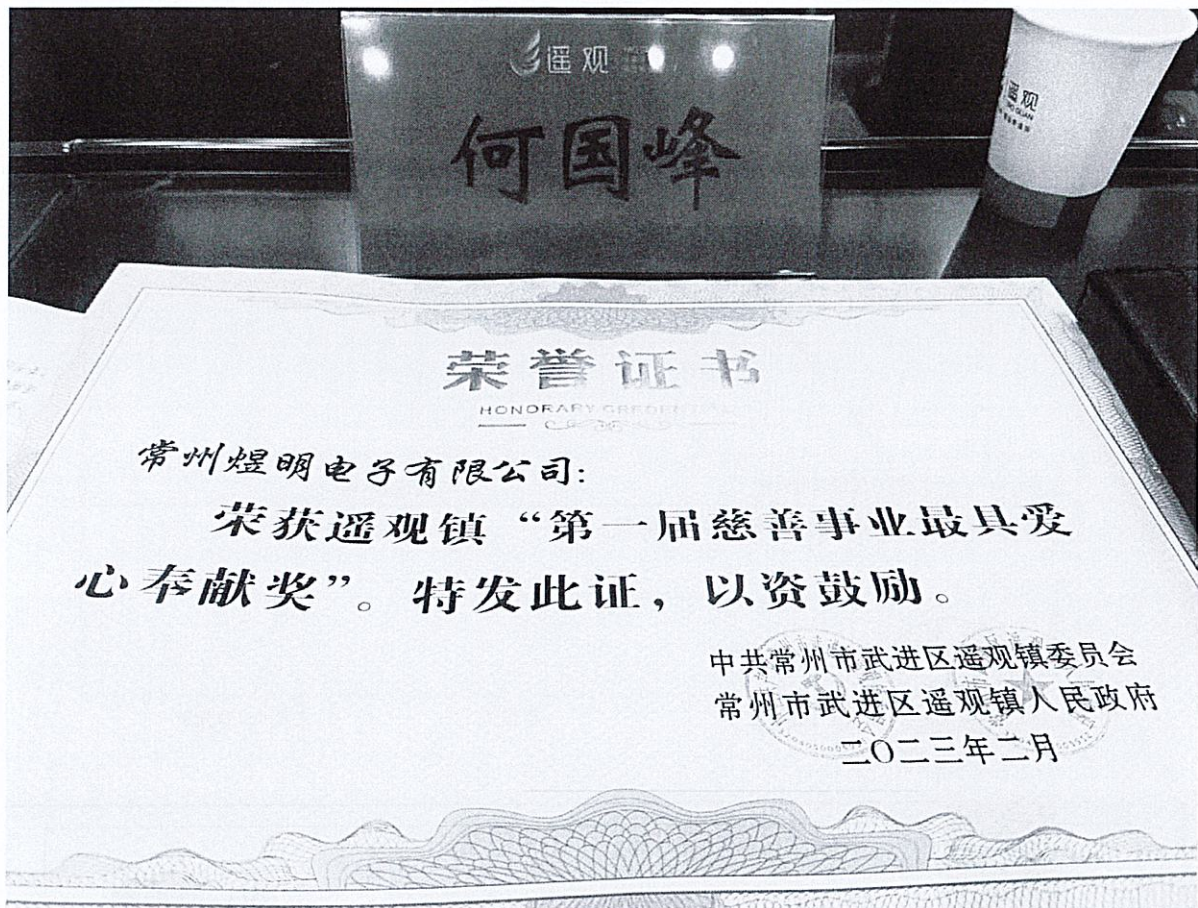 遥观
何国峰
遥观
荣誉证书
HONORARY CREDENTIAL
常州煜明电子有限公司：
荣获遥观镇“第一届慈善事业最具爱
心奉献奖”。特发此证，以资鼓励。
中共常州市武进区遥观镇委员会
常州市武进区遥观镇人民政府
二〇二三年二月